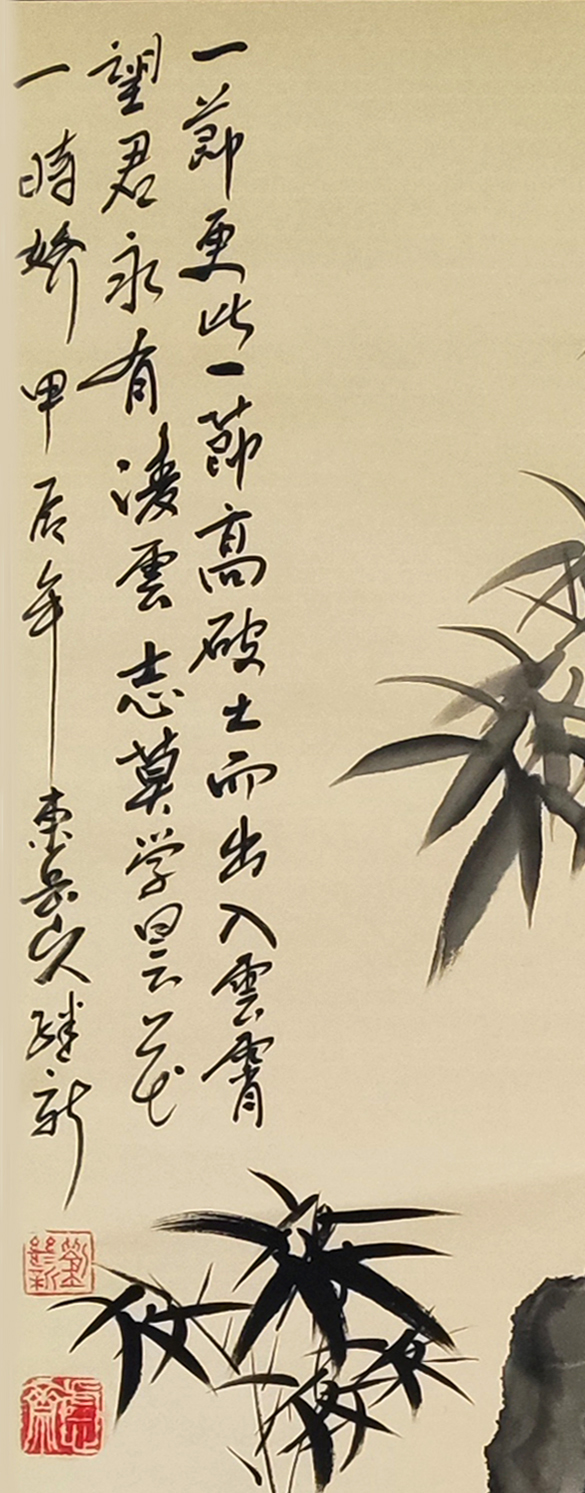 一節更比一節高破土而出入雲霄
望君永有凌雲志莫学昙花
一時嬌甲辰年東岳山人継新
劉繼新